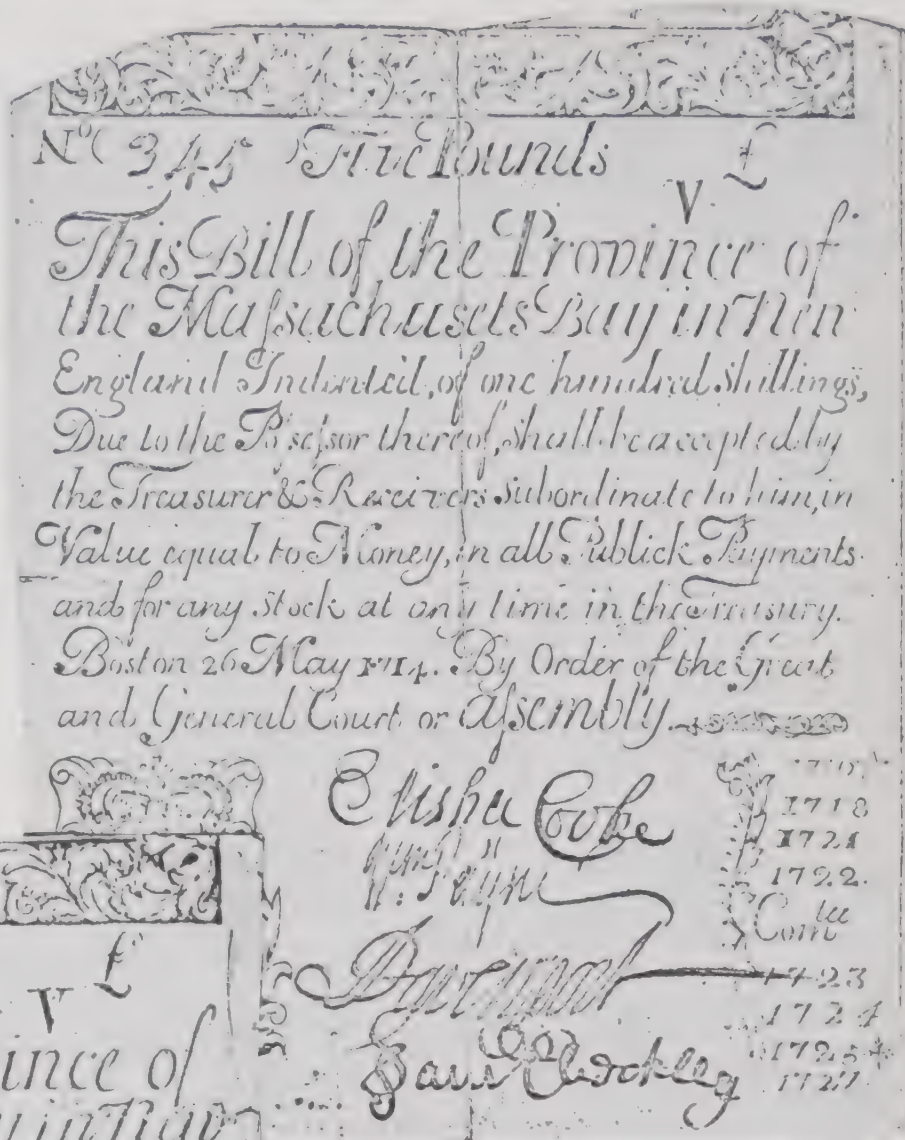 No 345 Five Pounds
V £
This Bill of the Province of
the Massachusets Bay in New
England Indented, of one hundred shillings,
Due to the Possessor thereof, shall be accepted by
the Treasurer & Receivers subordinate to him, in
Value equal to Money, in all Publick Payments
and for any stock at any time in the Treasury.
Boston 26 May 1714. By Order of the Great
and General Court or assembly
Elisha Cooke
1718
1721
1722
Comtee
1723
1724
£
V
ince of
y in New